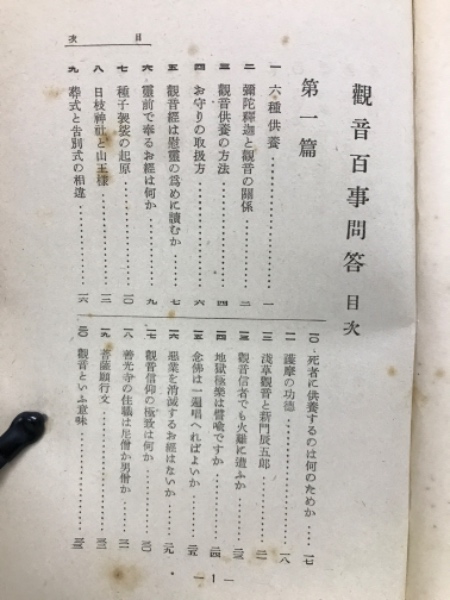 目次
觀音百事問答 目次
第一篇
一 六種供養…………一
二 彌陀釋迦と觀音の關係…………二
三 觀音供養の方法…………四
四 お守りの取扱方…………六
五 觀音經は慰靈の爲めに讀むか…………七
六 靈前で奉るお經は何か…………九
七 種子袈裟の起原…………一〇
八 日枝神社と山王樣…………一二
九 葬式と告別式の相違…………一六
一〇 死者に供養するのは何のためか…………一七
一一 護摩の功德…………一八
一二 淺草觀音と新門辰五郎…………二一
一三 觀音信者でも火難に遭ふか…………二三
一四 地獄極樂は譬喩ですか…………二四
一五 念佛は一遍唱へればよいか…………二五
一六 惡業を消滅するお經はないか…………二九
一七 觀音信仰の極致は何か…………三〇
一八 善光寺の住職は尼僧か男僧か…………三一
一九 菩薩願行文…………三三
二〇 觀音といふ意味…………三三
— 1 —